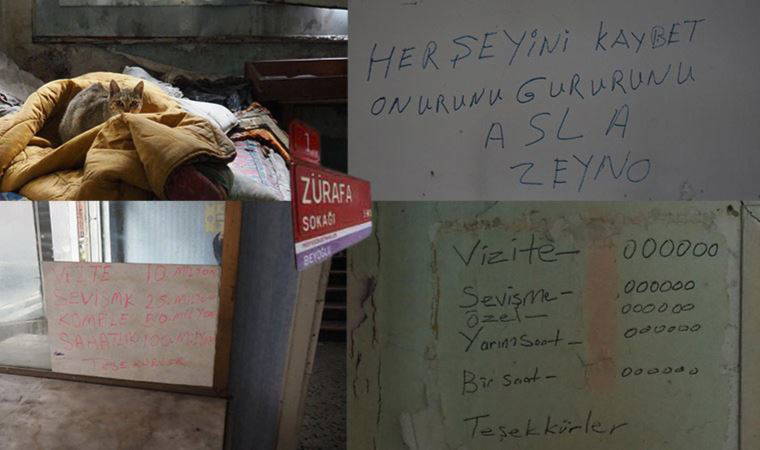 HERŞEYİNİ KAYBET
ONURUNU GURURUNU
ASLA
ZEYNO
ZÜRAFA
SOKAĞI
BEYOĞLU
VİZTE 10 MİLYON
SEVİŞMK 25 MİLYON
KOMPLE 50 MİLYON
SAHATLIK 100 MİLYON
Vizite – 000000
Sevişme – 000000
Özel – 000000
Yarım Saat – 000000
Bir Saat – 000000
Teşekkürler